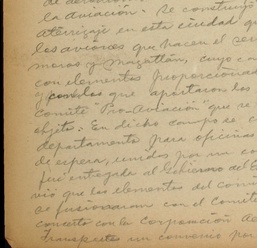 la aviación. Se construyó
aterrizaje en esta ciudad q
los aviones que hacen el ser
moros y Mazatlán, cuyo ca
con elementos proporcionad
y con los que aportaron los
comité "Pro-Aviación" que se
objeto. En dicho campo se c
departamento para oficinas
de espera, unidos por un co
fué entregada al Gobierno del E
vió que los elementos del comi
se fusionaran con el Comité
concerto con la Corporación Ae
transportes un convenio par